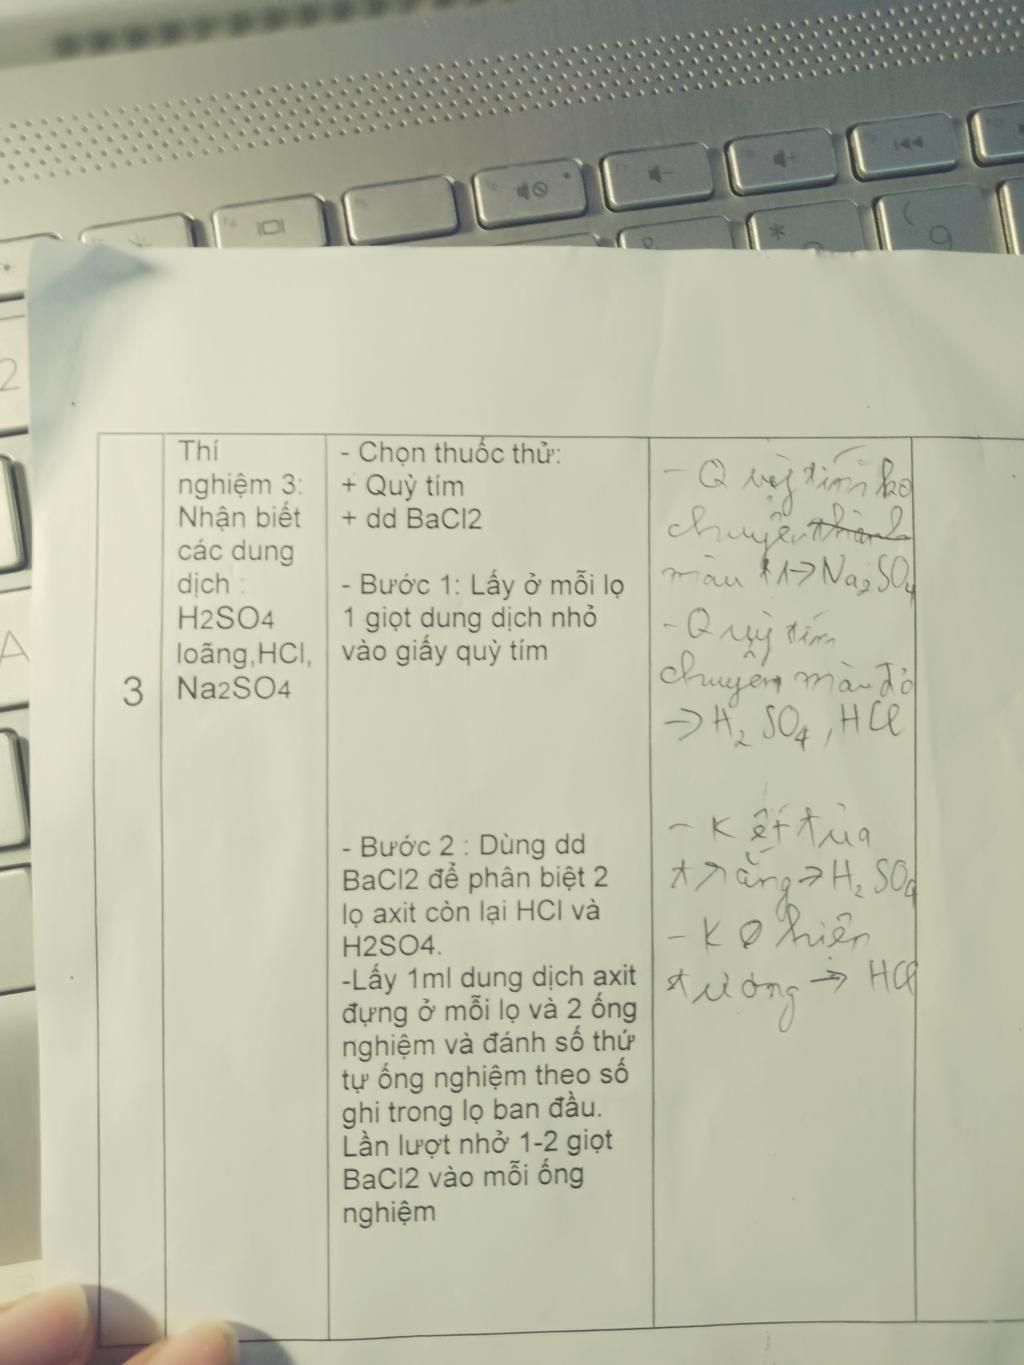 3
Thí
nghiệm 3:
Nhận biết
các dung
dịch :
H2SO4
loãng,HCl,
Na2SO4
- Chọn thuốc thử:
+ Quỳ tím
+ dd BaCl2
- Bước 1: Lấy ở mỗi lọ
1 giọt dung dịch nhỏ
vào giấy quỳ tím
- Bước 2 : Dùng dd
BaCl2 để phân biệt 2
lọ axit còn lại HCl và
H2SO4.
-Lấy 1ml dung dịch axit
đựng ở mỗi lọ và 2 ống
nghiệm và đánh số thứ
tự ống nghiệm theo số
ghi trong lọ ban đầu.
Lần lượt nhở 1-2 giọt
BaCl2 vào mỗi ống
nghiệm
- Quỳ tím ko
chuyển
màu → Na2SO4
- Quỳ tím
chuyển màu đỏ
→ H2SO4, HCl
- Kết tủa
trắng → H2SO4
- K0 hiện
tượng → HCl
2
A
*
(
9